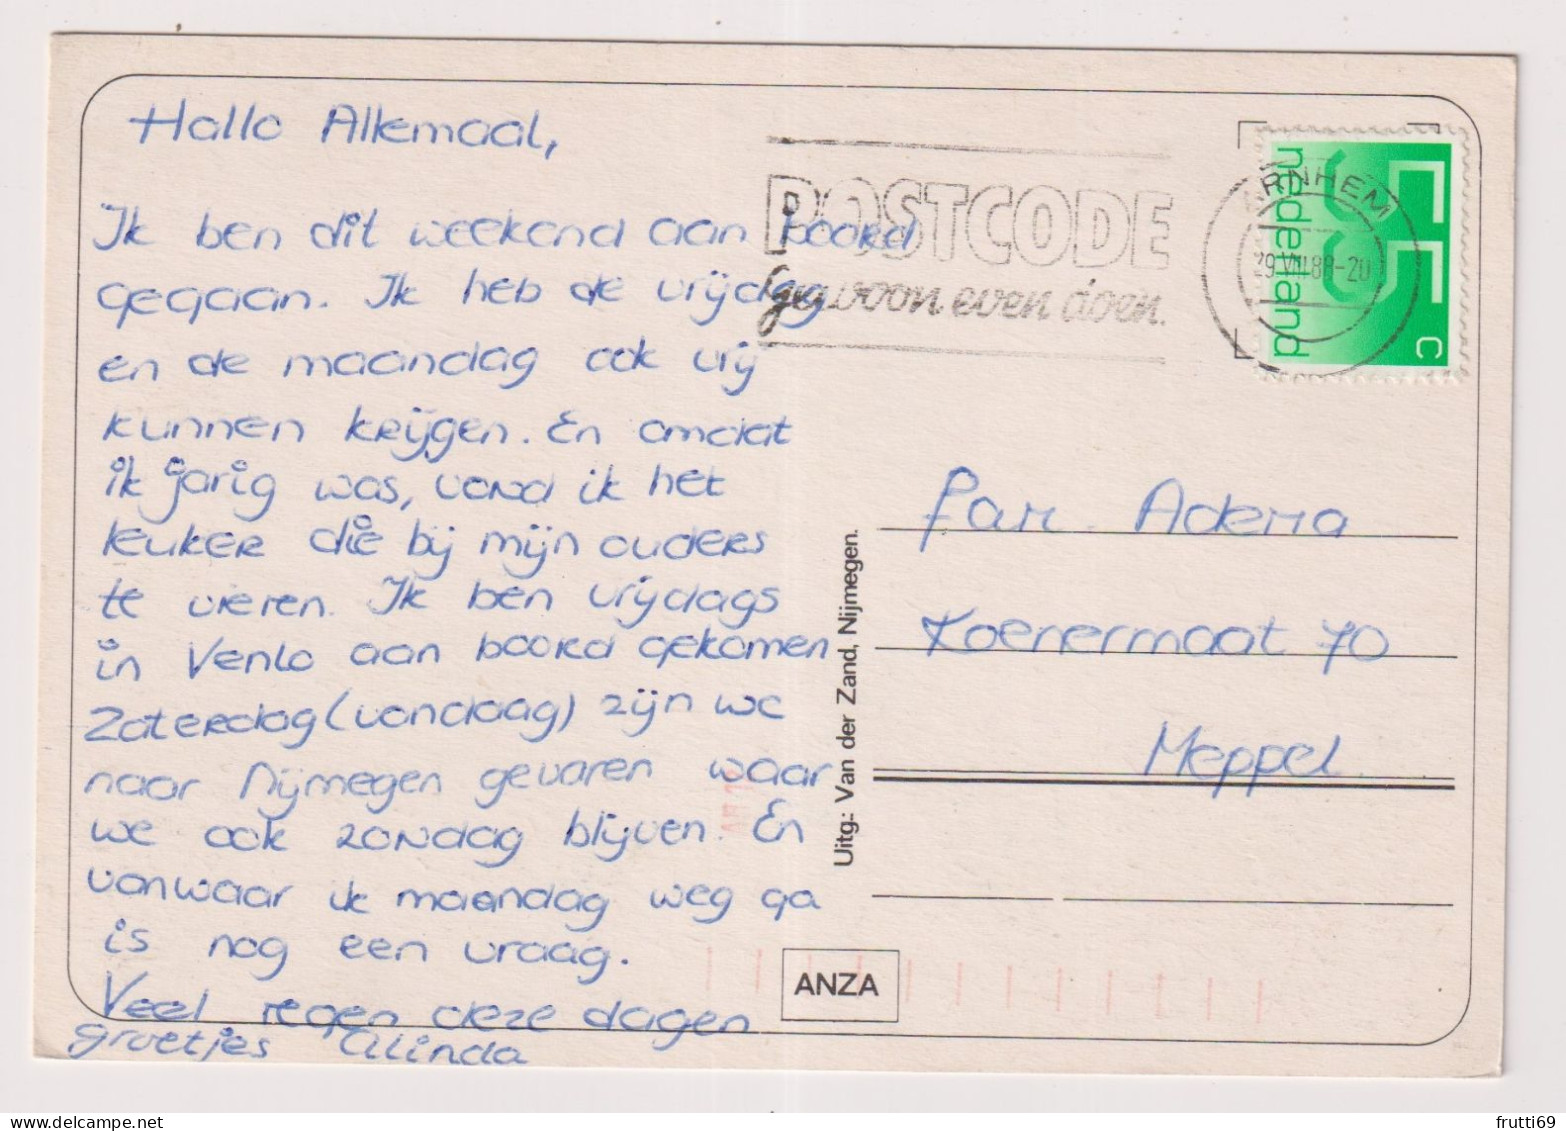 Hallo Allemaal,
Ik ben dit weekend aan boord
gegaan. Ik heb de vrijdag
en de maandag ook vrij
kunnen krijgen. En omdat
ik jarig was, vond ik het
leuker die bij mijn ouders
te vieren. Ik ben vrijdags
in Venlo aan boord gekomen
Zaterdag (vandaag) zijn we
naar Nijmegen gevaren waar
we ook zondag blijven. En
vanwaar ik maandag weg ga
is nog een vraag.
Veel regen deze dagen
groetjes Alinda
POSTCODE
Gewoon even doen.
ARNHEM
29.VII.88-20
nederland
55 c
fam. Adema
Koenermaat 70
Meppel
Uitg.: Van der Zand, Nijmegen.
ANZA
frutti69